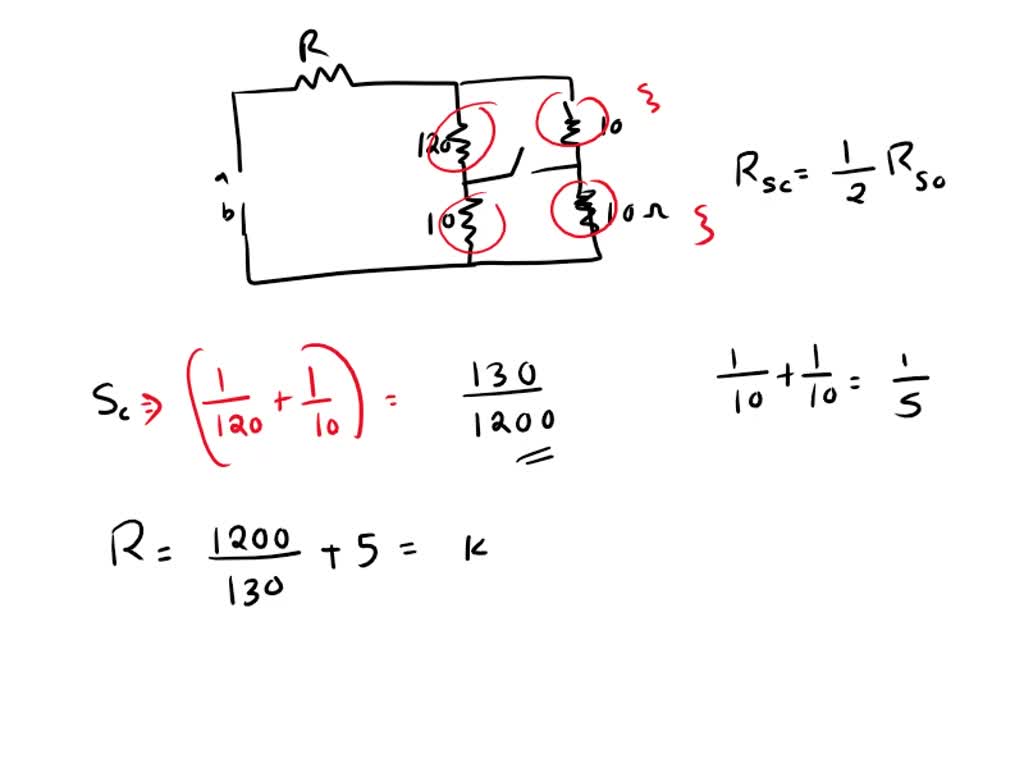 R
120 10
a
b
10 10 Ω
R_sc = 1/2 R_so
S_c ⇒ (1/120 + 1/10) = 130/1200
1/10 + 1/10 = 1/5
R = 1200/130 + 5 = k